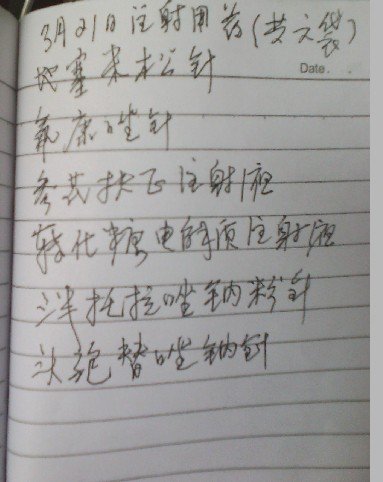 3月21日注射用药(共六袋)
Date.
地塞米松针
氟康唑针
参芪扶正注射液
转化糖电解质注射液
泮托拉唑钠粉针
头孢替唑钠针